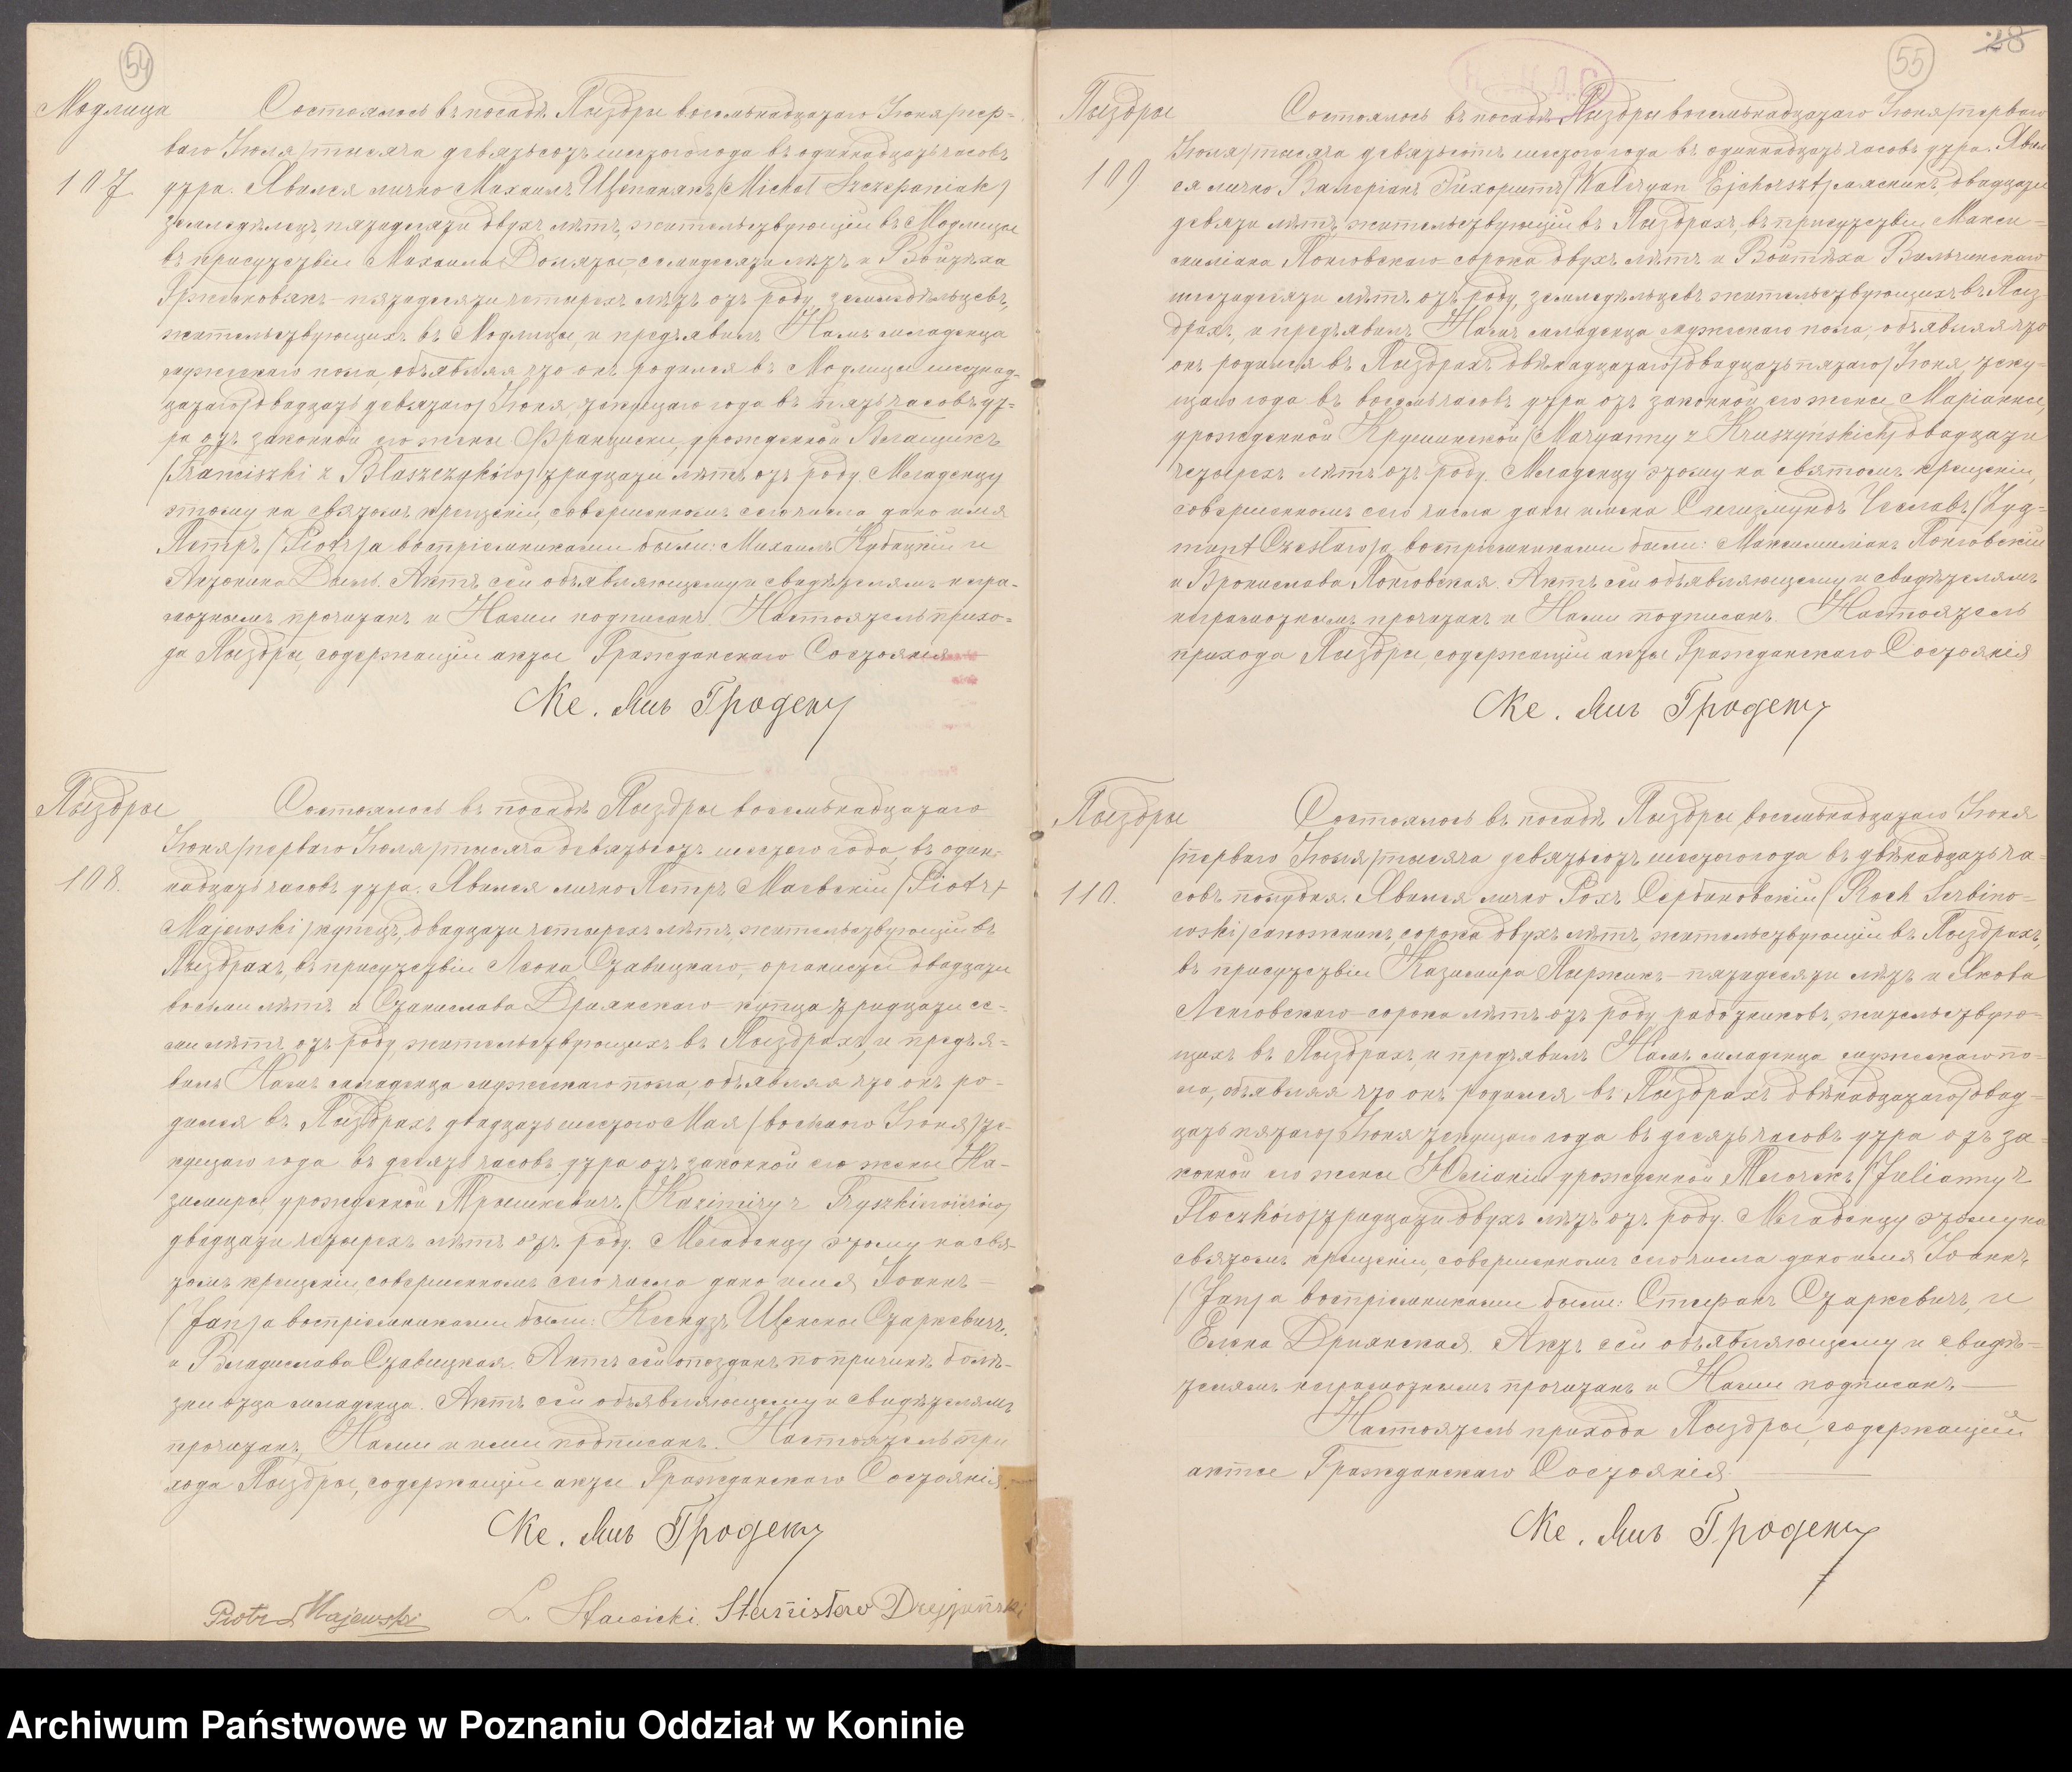 54
Модлица
107
Состоялось въ посадѣ Пыздры восемьнадцатаго Іюня /пер-
ваго Іюля/ тысяча девятьсотъ шестого года въ одиннадцать часовъ
утра. Явился лично Михаилъ Щепанякъ /Michał Szczepaniak/
земледѣлецъ, пятидесяти двухъ лѣтъ, жительствующій въ Модлицы
въ присутствіи Михаила Доляты, семидесяти лѣтъ и Войтѣха
пятидесяти четырехъ лѣтъ отъ роду, земледѣльцевъ,
жительствующихъ въ Модлицы, и предъявилъ Намъ младенца
мужескаго пола, объявляя что онъ родился въ Модлицы шестнад-
цатаго /двадцать девятаго/ Іюня, текущаго года въ пять часовъ ут-
ра отъ законной его жены Францишки, урожденной Блащикъ
/Franciszki z Błaszczyków/ тридцати лѣтъ отъ роду. Младенцу
этому на святомъ крещеніи, совершенномъ сего числа дано имя
Петръ /Piotr/ а воспріемниками были: Михаилъ Кубацкій и
Антонина Дыль. Актъ сей объявляющему и свидѣтелямъ негра-
мотнымъ прочитанъ и Нами подписанъ. Настоятель прихо-
да Пыздры, содержащій акты Гражданскаго Состоянія
Кс. Янъ Гродецу
Пыздры
108.
Состоялось въ посадѣ Пыздры восемьнадцатаго
Іюня /перваго Іюля/ тысяча девятьсотъ шестого года, въ один-
надцать часовъ утра. Явился лично Петръ Маевскій /Piotr
Majewski/ купецъ, двадцати четырехъ лѣтъ, жительствующій въ
Пыздрахъ, въ присутствіи Леона Ставицкаго, органисты двадцати
восьми лѣтъ и Станислава Дріянскаго купца тридцати се-
ми лѣтъ отъ роду, жительствующихъ въ Пыздрахъ, и предъя-
вилъ Намъ младенца мужескаго пола, объявляя что онъ ро-
дился въ Пыздрахъ двадцать шестого Мая /восьмого Іюня/ те-
кущаго года въ десять часовъ утра отъ законной его жены Ка-
зимиры урожденной Трышкевичъ /Kazimiry z Tryszkiewiczów/
двадцати четырехъ лѣтъ отъ роду. Младенцу этому на свя-
томъ крещеніи, совершенномъ сего числа дано имя Іоаннъ
/Jan/ а воспріемниками были: Ксендзъ Щенсны Старкевичъ,
и Владислава Ставицкая. Актъ сей опозданъ по причинѣ болѣ-
зни отца младенца. Актъ сей объявляющему и свидѣтелямъ
прочитанъ, Нами и ими подписанъ. Настоятель при
хода Пыздры, содержащій акты Гражданскаго Состоянія.
Кс. Янъ Гродецу
Piotr Majewski L. Stawicki. Stanisław Dryjański
55
28
Пыздры
109
Состоялось въ посадѣ Пыздры восемьнадцатаго Іюня /перваго
Іюля/ тысяча девятьсотъ шестого года въ одиннадцать часовъ утра. Явил
ся лично Валеріанъ Эйхорштъ /Waleryan Ejchorszt/ мясникъ, двадцати
девяти лѣтъ, жительствующій въ Пыздрахъ, въ присутствіи Макси-
миліана Понговскаго сорока двухъ лѣтъ и Войтѣха Вильчинскаго
шестидесяти лѣтъ отъ роду, земледѣльцевъ жительствующихъ въ Пыз
драхъ, и предъявилъ Намъ младенца мужескаго пола, объявляя что
онъ родился въ Пыздрахъ двѣнадцатаго /двадцать пятаго/ Іюня, теку-
щаго года въ восемь часовъ утра отъ законной его жены Маріанны,
урожденной Крушинской /Maryanny z Kruszyńskich/ двадцати
четырехъ лѣтъ отъ роду. Младенцу этому на святомъ крещеніи,
совершенномъ сего числа даны имена Сигизмундъ Чеславъ /Zyg-
munt Czesław/ а воспріемниками были: Максимиліанъ Понговскій
и Бронислава Понговская. Актъ сей объявляющему и свидѣтелямъ
неграмотнымъ прочитанъ и Нами подписанъ. Настоятель
прихода Пыздры, содержащій акты Гражданскаго Состоянія
Кс. Янъ Гродецу
Пыздры
110.
Состоялось въ посадѣ Пыздры, восемьнадцатаго Іюня
/перваго Іюля/ тысяча девятьсотъ шестого года въ двѣнадцать ча-
совъ полудня. Явился лично Рохъ Сербиновскій /Roch Serbino-
wski/ сапожникъ, сорока двухъ лѣтъ, жительствующій въ Пыздрахъ,
въ присутствіи Казимира Пыржикъ пятидесяти лѣтъ и Якова
Ленговскаго сорока лѣтъ отъ роду, работниковъ, жительствую-
щихъ въ Пыздрахъ, и предъявилъ Намъ младенца мужескаго по-
ла, объявляя что онъ родился въ Пыздрахъ двѣнадцатаго /двад-
цать пятаго/ Іюня текущаго года въ десять часовъ утра отъ за-
конной его жены Юліанны урожденной Плочекъ /Julianny z
Płoczków/ тридцати двухъ лѣтъ отъ роду. Младенцу этому на
святомъ крещеніи, совершенномъ сего числа дано имя Іоаннъ,
/Jan/ а воспріемниками были: Стефанъ Старкевичъ, и
Елена Дриянская. Актъ сей объявляющему и свидѣ-
телямъ неграмотнымъ прочитанъ и Нами подписанъ.
Настоятель прихода Пыздры, содержащій
акты Гражданскаго Состоянія
Кс. Янъ Гродецу
Archiwum Państwowe w Poznaniu Oddział w Koninie